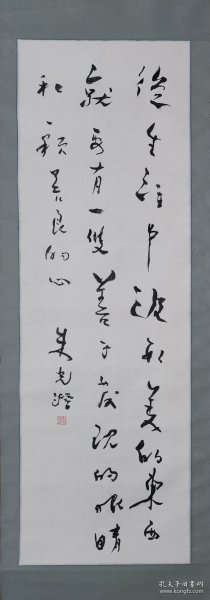 從生活中發現美的東西
就要有一雙善于發現的眼睛
和一顆善良的心 朱光潛
孔夫子旧书网